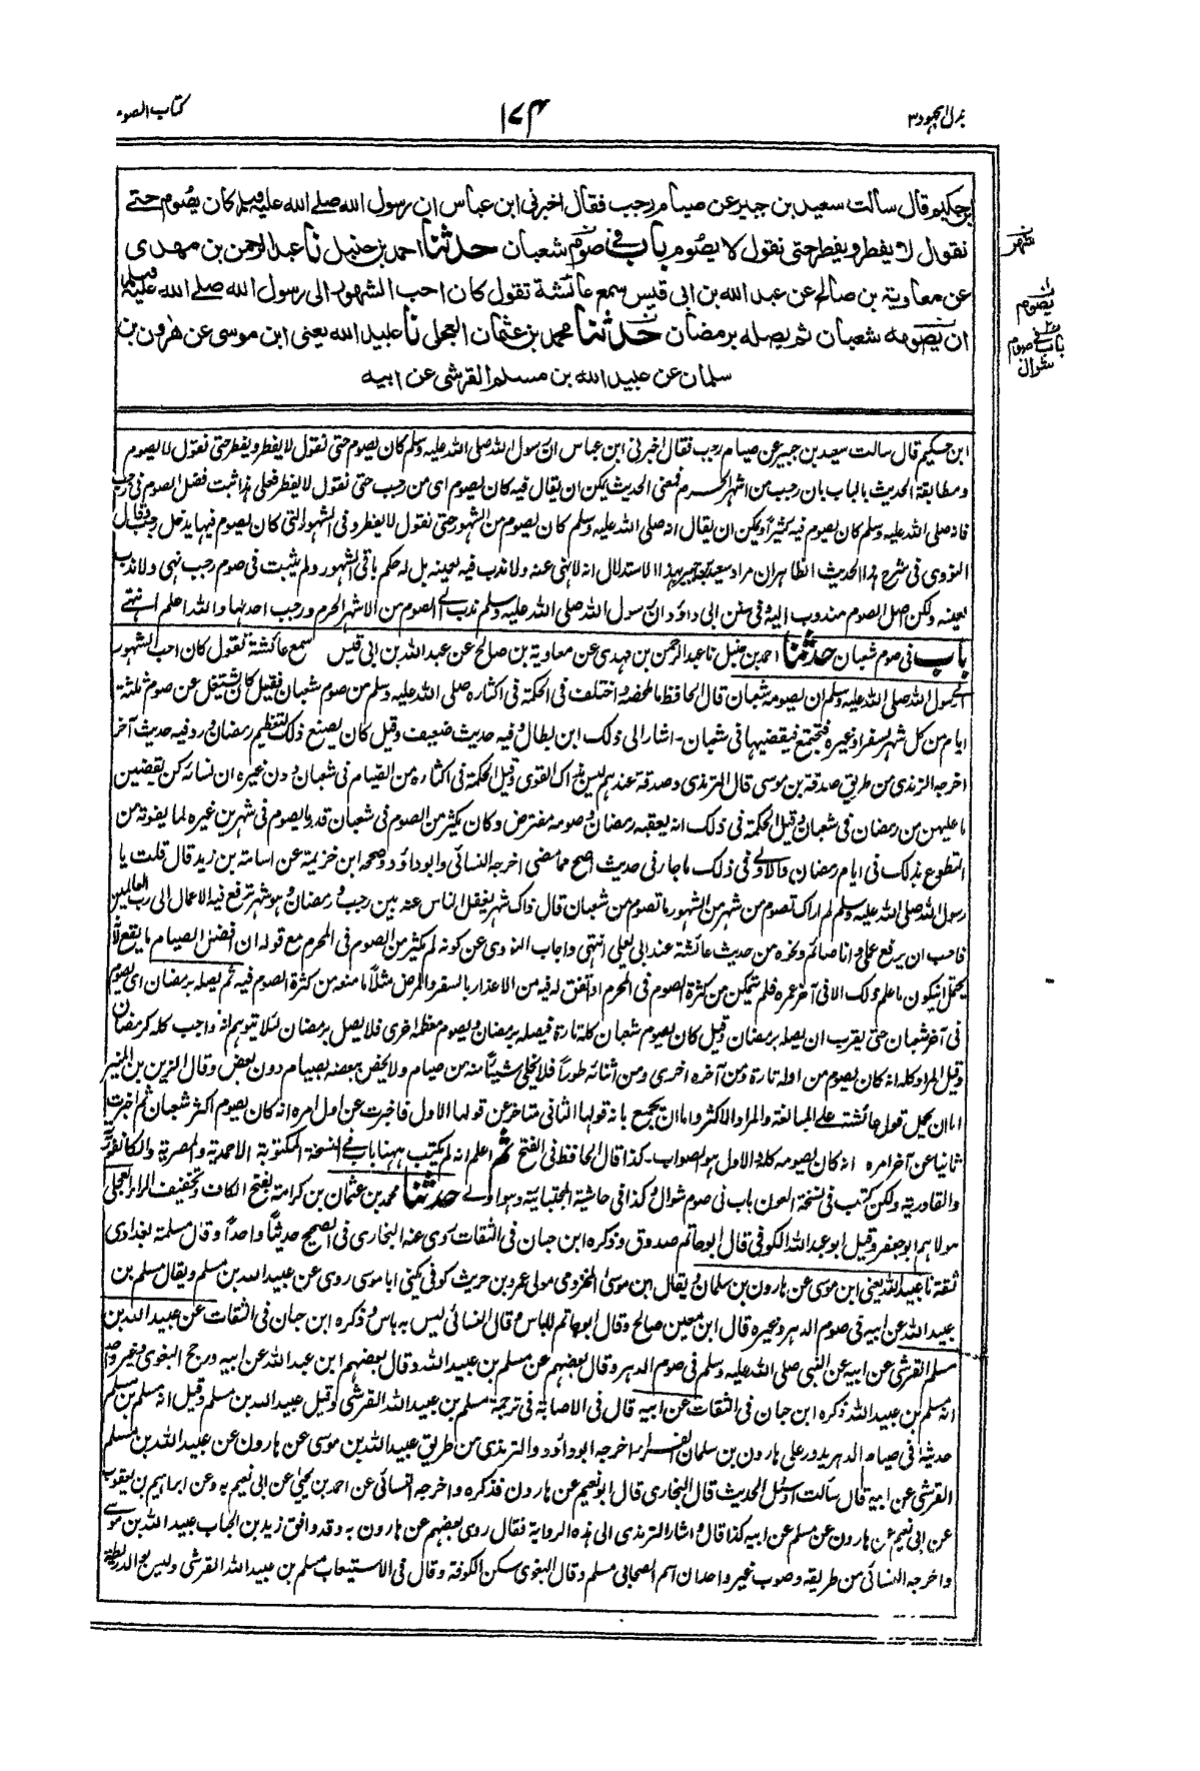 بذل المجهود ٣
١٧٣
كتاب الصوم
بن حكيم قال سالت سعيد بن جبير عن صيام رجب فقال اخبرني ابن عباس ان رسول الله صلے الله عليه وسلم كان يصوم حتے
نقول لا يفطر ويفطر حتى نقول لا يصوم باب في صوم شعبان حدثنا احمد بن حنبل نا عبد الرحمن بن مهدى
عن معاوية بن صالح عن عبد الله بن ابى قيس سمع عائشة تقول كان احب الشهور الى رسول الله صلے الله عليه وسلم
ان يصومه شعبان ثم يصله برمضان حدثنا محمد بن عثمان العجلى نا عبيد الله يعنى ابن موسى عن هرون بن
سلمان عن عبيد الله بن مسلم القرشى عن ابيه
شهر
يصوم
باب في صوم
شوال
ابن حكيم قال سالت سعيد بن جبير عن صيام رجب فقال اخبرنى ابن عباس ان رسول الله صلى الله عليه وسلم كان يصوم حتى نقول لا يفطر ويفطر حتى نقول لا يصوم
ومطابقة الحديث بالباب بان رجب من اشهر الحرم فمعنى الحديث يمكن ان يقال فيه كان يصوم اى من رجب حتى نقول لا يفطر فعلى هذا ثبت فضل الصوم فى رجب
فانه صلى الله عليه وسلم كان يصوم فيه كثيرا ويمكن ان يقال انه صلى الله عليه وسلم كان يصوم من الشهور حتى نقول لا يفطر وفى الشهور التى كان يصوم فيها يدخل رجب وقال
النووى فى شرح هذا الحديث الظاهر ان مراد سعيد بن جبير بهذا الاستدلال انه لا نهى عنه ولا ندب فيه لعينه بل له حكم باقى الشهور ولم يثبت فى صوم رجب نهى ولا ندب
لعينه ولكن اصل الصوم مندوب اليه وفى سنن ابى داؤد ان رسول الله صلى الله عليه وسلم ندب الے الصوم من الاشهر الحرم ورجب احدها والله اعلم انتہے
باب فى صوم شعبان حدثنا احمد بن حنبل نا عبد الرحمن بن مهدى عن معاوية بن صالح عن عبد الله بن ابى قيس سمع عائشة تقول كان احب الشهور
الى رسول الله صلى الله عليه وسلم ان يصومه شعبان قال الحافظ ما ملخصه واختلف فى الحكمة فى اكثاره صلى الله عليه وسلم من صوم شعبان فقيل كان يشتغل عن صوم ثلثة
ايام من كل شهر لسفر او غيره فتجتمع فيقضيها فى شعبان - اشار الى ذلك ابن بطال وفيه حديث ضعيف وقيل كان يصنع ذلك لتعظيم رمضان ورد فيه حديث آخر
اخرجه الترمذى من طريق صدقة بن موسى قال الترمذى وصدقة عندهم ليس بذاك القوى وقيل الحكمة فى اكثاره من الصيام فى شعبان دون غيره ان نسائه كن يقضين
ما عليهن من رمضان فى شعبان وقيل الحكمة فى ذلك انه يعقبه رمضان وصومه مفترض وكان يكثر من الصوم فى شعبان قدر ما يصوم فى شهرين غيره لما يفوته من
التطوع بذلك فى ايام رمضان والاولے فى ذلك ما جاء فى حديث اصح مما مضى اخرجه النسائى وابو داؤد وصححه ابن خزيمة عن اسامة بن زيد قال قلت يا
رسول الله صلى الله عليه وسلم لم ارك تصوم من شهر من الشهور ما تصوم من شعبان قال ذاك شهر يغفل الناس عنه بين رجب ورمضان وهو شهر ترفع فيه الاعمال الى رب العالمين
فاحب ان يرفع عملى وانا صائم ونحوه من حديث عائشة عند ابى يعلى انتهى واجاب النووى عن كونه لم يكثر من الصوم فى المحرم مع قوله ان افضل الصيام ما يقع فيه
يحتمل ان يكون ما علم ذلك الا فى آخر عمره فلم يتمكن من كثرة الصوم فى المحرم او اتفق له فيه من الاعذار بالسفر والمرض مثلاً ما منعه من كثرة الصوم فيه ثم يصله برمضان اى يصوم
فى آخر شعبان حتى يقرب ان يصله برمضان وقيل كان يصوم شعبان كله تارة فيصله برمضان ويصوم معظمه اخرى فلا يصل برمضان لئلا يتوهم انه واجب كله كرمضان
وقيل المراد كله انه كان يصوم من اوله تارة ومن آخره اخرى ومن اثنائه طوراً فلا يخلى شيئاً منه من صيام ولا يخص بعضه بصيام دون بعض وقال الزين بن المنير
اما ان يحمل قول عائشة على المبالغة والمراد الاكثر واما ان يجمع بانه قولها الثانى متاخر عن قولها الاول فاخبرت عن اول امره انه كان يصوم اكثر شعبان ثم اخبرت
ثانيا عن آخر امره انه كان يصومه كله والاول هو الصواب - كذا قال الحافظ فى الفتح ثم اعلم انه لم يكتب ههنا باب فے النسخة المكتوبة الاحمدية والمصرية والكانفورية
والقادرية ولكن كتب فى نسخة العون باب فى صوم شوال وكذا فى حاشية المجتبائية وهو اولے حدثنا محمد بن عثمان بن كرامة بفتح الكاف وتخفيف الراء العجلى
مولاهم ابو جعفر وقيل ابو عبد الله الكوفى قال ابو حاتم صدوق وذكره ابن حبان فى الثقات روى عنه البخارى فى الصحيح حديثاً واحداً وقال مسلمة بغدادى
ثقة نا عبيد الله يعنى ابن موسى عن هارون بن سلمان ويقال ابن موسى المخزومى مولى عمرو بن حريث كوفى يكنى ابا موسى روى عن عبيد الله بن مسلم ويقال مسلم بن
عبيد الله عن ابيه فى صوم الدهر وغيره قال ابن معين صالح وقال ابو حاتم لا باس وقال النسائى ليس به باس وذكره ابن حبان فى الثقات عن عبيد الله بن
مسلم القرشى عن ابيه عن النبى صلى الله عليه وسلم فى صوم الدهر وقال بعضهم عن مسلم بن عبيد الله وقال بعضهم ابن عبد الله عن ابيه ورجح البغوى وغير واحد
انه مسلم بن عبيد الله ذكره ابن حبان فى الثقات عن ابيه قال فى الاصابة فى ترجمة مسلم بن عبيد الله القرشى وقيل عبيد الله بن مسلم وقيل انه مسلم بن مسلم
حديثه فى صيام الدهر يدور على هارون بن سلمان الفراء اخرجه ابو داؤد والترمذى من طريق عبيد الله بن موسى عن هارون عن عبيد الله بن مسلم
القرشى عن ابيه قال سألت او سئل الحديث قال البخارى قال ابو نعيم عن هارون فذكره واخرجه النسائى عن احمد بن يحيى عن ابى نعيم به وعن ابراهيم بن يعقوب
عن ابى نعيم عن هارون عن مسلم عن ابيه كذا قال واشار الترمذى الى هذه الرواية فقال روى بعضهم عن هارون به وقد وافق زيد بن الحباب عبيد الله بن موسے
واخرجه النسائى من طريقه وصوب غير واحد ان اسم الصحابى مسلم وقال البغوى سكن الكوفة وقال فى الاستيعاب مسلم بن عبيد الله القرشى وليس بوالد رائطة